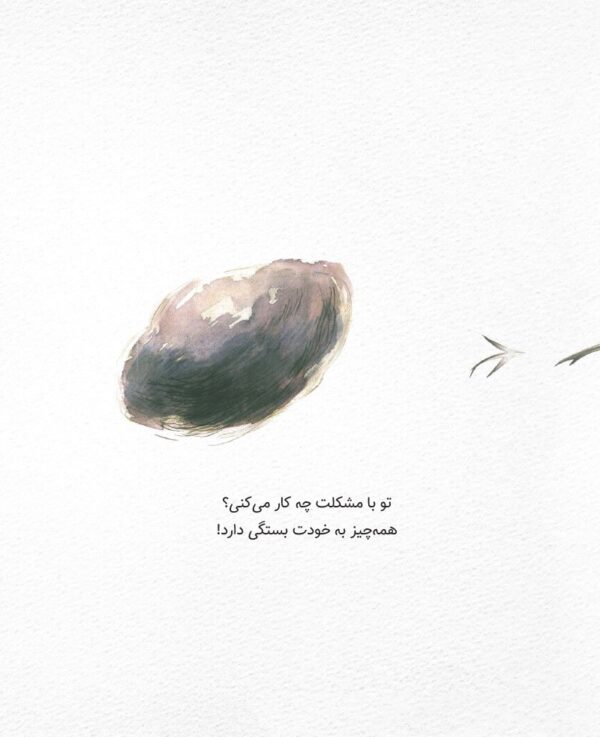 تو با مشکلت چه کار می‌کنی؟
همه‌چیز به خودت بستگی دارد!